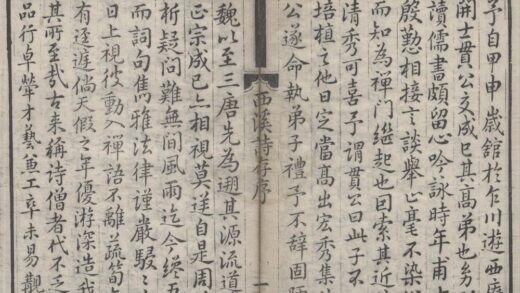 予自甲申歲舘於乍川遊西
開士貫公交成已其高弟也幼
讀儒書頗留心吟詠時年甫
殷懃相接之談舉止毫不染
而知為禪門繼起也因索其近
清秀可喜予謂貫公曰此子不
培植之他日定當高出宏秀集
公遂命執弟子禮予不辭固陋
西溪詩存序
一
魏以至三唐先為遡其源流道
正宗成已亦相視莫逆自是周
析疑問難無間風雨迄今纔五
而詞句雋雅法律謹嚴駸〻
日上視彼動入禪語不離蔬筍
有遲倘天假之年優游深造我
其所至哉古来稱詩僧者代不乏
品行卓犖才藝兼工卒未易覯